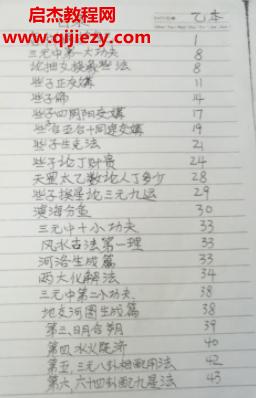 启杰教程网
www.qijiezy.com
乙本
1
三元中第一大功夫 8
论抽爻换象些法 8
些子正文媾 11
些子篇 14
些子四阴阳交媾 17
19
些子生克法 21
些子论丁财贵 24
天罡太乙数论人丁多少 28
些子换星论三元九运 29
滨海分金 30
三元中十小功夫 33
风水古法第一理 33
河洛生成篇 33
两大化解法 34
三元中第二小功夫 38
地支河图生成篇 38
第三、日月合朔 39
第四、水火既济 40
第五、三元八卦相配用法 42
第六、六十四卦配九星法 43